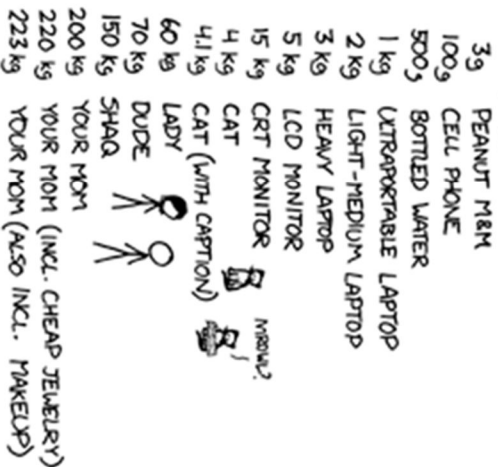 3g PEANUT M&M
100g CELL PHONE
500g BOTTLED WATER
1 kg ULTRAPORTABLE LAPTOP
2 kg LIGHT-MEDIUM LAPTOP
3 kg HEAVY LAPTOP
5 kg LCD MONITOR
15 kg CRT MONITOR
4 kg CAT
4.1 kg CAT (WITH CAPTION)
MROWL?
60 kg LADY
70 kg DUDE
150 kg SHAQ
200 kg YOUR MOM
220 kg YOUR MOM (INCL. CHEAP JEWELRY)
223 kg YOUR MOM (ALSO INCL. MAKEUP)